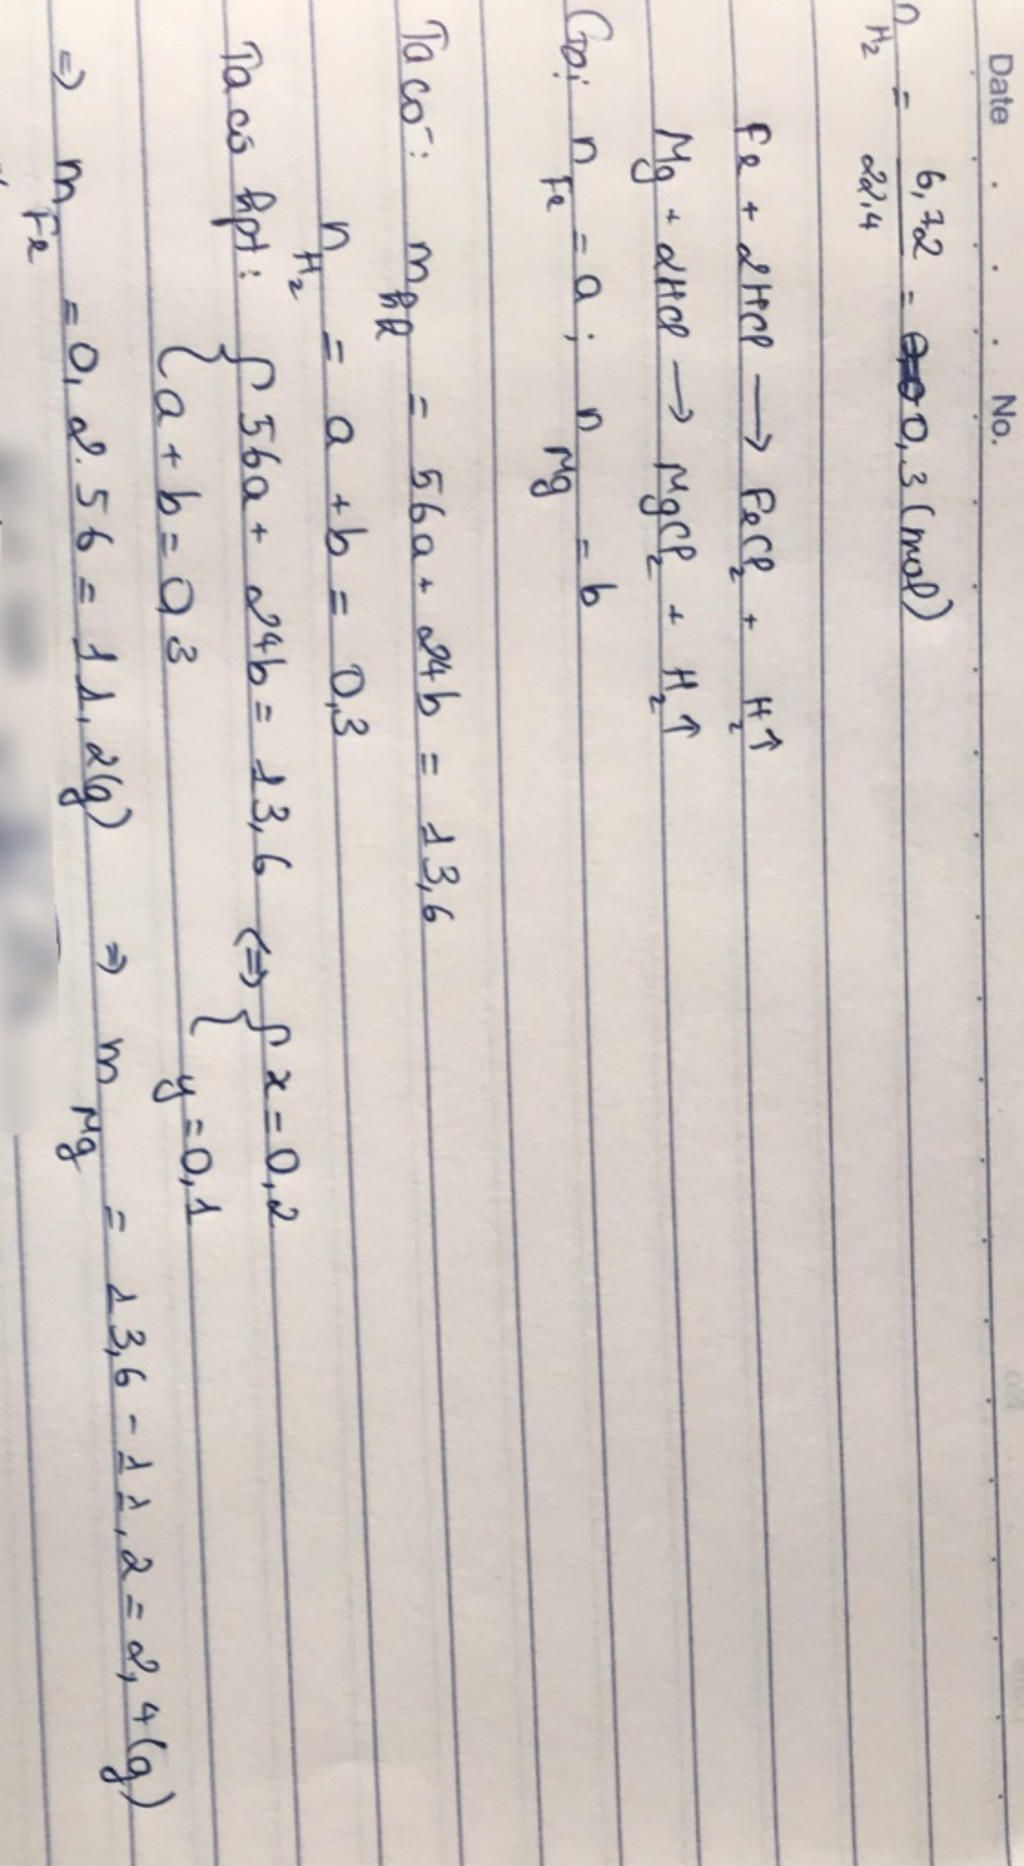 Date . . . . No.
n H₂ = 6,72 / 22,4 = 0,3 (mol)
Fe + 2HCl → FeCl₂ + H₂↑
Mg + 2HCl → MgCl₂ + H₂↑
Gọi n Fe = a ; n Mg = b
Ta có : m hh = 56a + 24b = 13,6
n H₂ = a + b = 0,3
Ta có hpt : { 56a + 24b = 13,6 <=> { x = 0,2
a + b = 0,3 y = 0,1
=> m Fe = 0,2.56 = 11,2 (g) => m Mg = 13,6 - 11,2 = 2,4 (g)